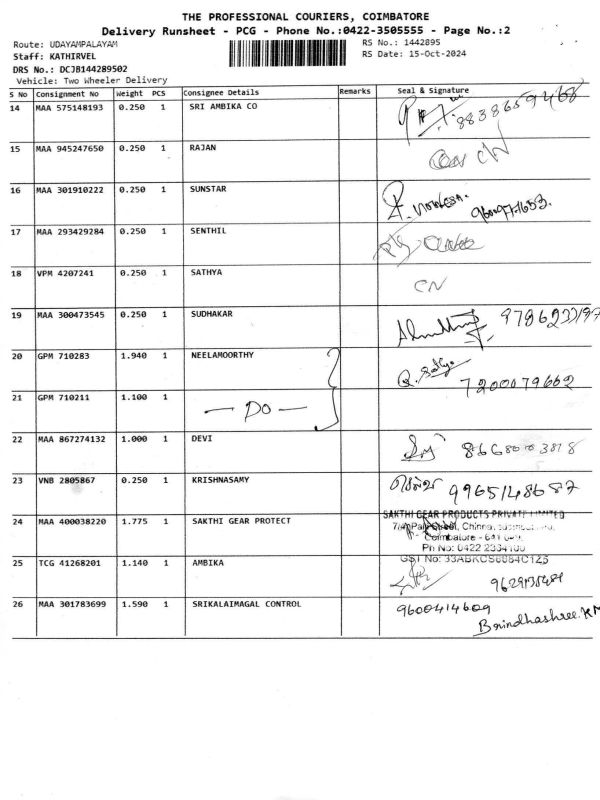 THE PROFESSIONAL COURIERS, COIMBATORE
Delivery Runsheet - PCG - Phone No.:0422-3505555 - Page No.:2
Route: UDAYAMPALAYAM RS No.: 1442895
Staff: KATHIRVEL RS Date: 15-Oct-2024
DRS No.: DCJB144289502
Vehicle: Two Wheeler Delivery
S No Consignment No Weight PCS Consignee Details Remarks Seal & signature
14 MAA 575148193 0.250 1 SRI AMBIKA CO 8838659468
15 MAA 945247650 0.250 1 RAJAN CN
16 MAA 301910222 0.250 1 SUNSTAR
17 MAA 293429284 0.250 1 SENTHIL
18 VPM 4207241 0.250 1 SATHYA CN
19 MAA 300473545 0.250 1 SUDHAKAR
20 GPM 710283 1.940 1 NEELAMOORTHY 7200079662
21 GPM 710211 1.100 1 — DO —
22 MAA 867274132 1.000 1 DEVI
23 VNB 2805867 0.250 1 KRISHNASAMY 9965148687
24 MAA 400038220 1.775 1 SAKTHI GEAR PROTECT SAKTHI GEAR PRODUCTS PRIVATE LIMITED
Coimbatore - 641
Ph No: 0422
GST No:
25 TCG 41268201 1.140 1 AMBIKA
26 MAA 301783699 1.590 1 SRIKALAIMAGAL CONTROL 9600414609
Brindhashree.KM